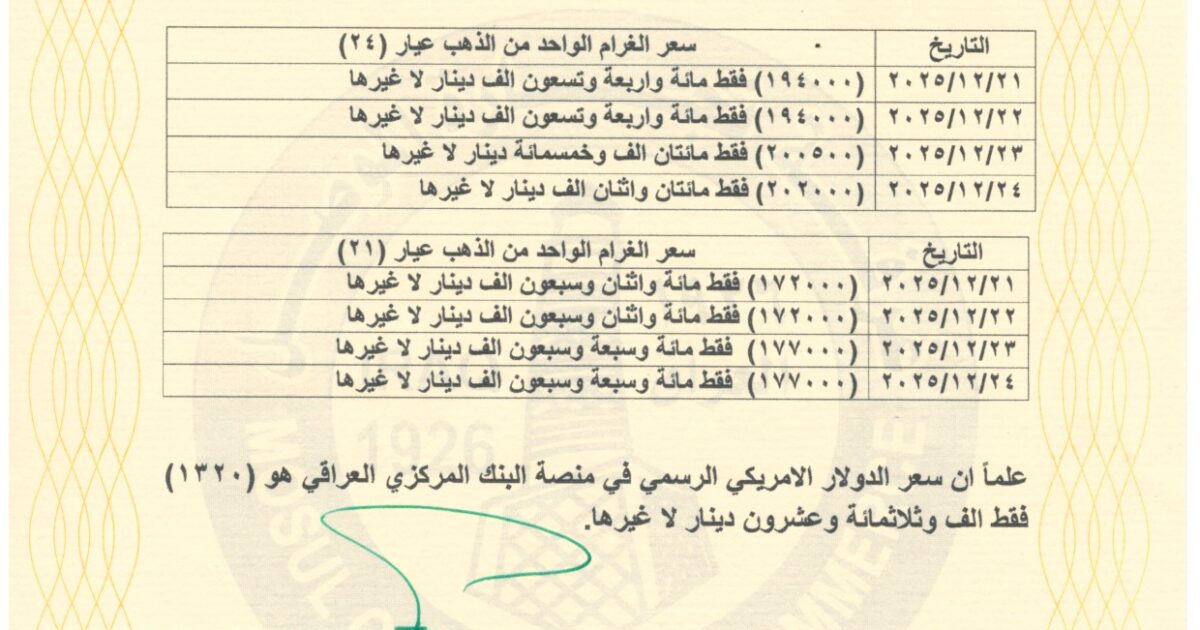 التاريخ سعر الغرام الواحد من الذهب عيار (٢٤)
٢٠٢٥/١٢/٢١ (١٩٤٠٠٠) فقط مائة واربعة وتسعون الف دينار لا غيرها
٢٠٢٥/١٢/٢٢ (١٩٤٠٠٠) فقط مائة واربعة وتسعون الف دينار لا غيرها
٢٠٢٥/١٢/٢٣ (٢٠٠٥٠٠) فقط مائتان الف وخمسمائة دينار لا غيرها
٢٠٢٥/١٢/٢٤ (٢٠٢٠٠٠) فقط مائتان واثنان الف دينار لا غيرها
التاريخ سعر الغرام الواحد من الذهب عيار (٢١)
٢٠٢٥/١٢/٢١ (١٧٢٠٠٠) فقط مائة واثنان وسبعون الف دينار لا غيرها
٢٠٢٥/١٢/٢٢ (١٧٢٠٠٠) فقط مائة واثنان وسبعون الف دينار لا غيرها
٢٠٢٥/١٢/٢٣ (١٧٧٠٠٠) فقط مائة وسبعة وسبعون الف دينار لا غيرها
٢٠٢٥/١٢/٢٤ (١٧٧٠٠٠) فقط مائة وسبعة وسبعون الف دينار لا غيرها
1926
علماً ان سعر الدولار الامريكي الرسمي في منصة البنك المركزي العراقي هو (١٣٢٠)
فقط الف وثلاثمائة وعشرون دينار لا غيرها.
MOSUL